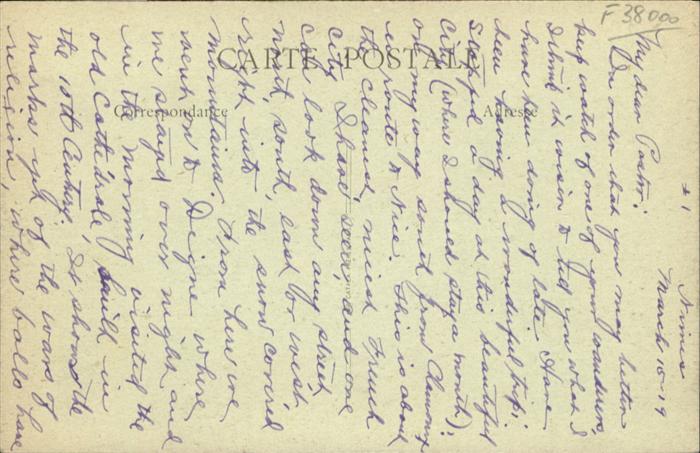 F 38000
CARTE POSTALE
Correspondance
Adresse
#1
Nimes
March 10-19
My dear Pastor:
In order that you may better
keep watch of one of your wanderers,
I think it wise to tell you what I
have been doing of late. Have
been having a wonderful trip.
Stopped a day at this beautiful
city (where I should stay a month),
on my way south from Clermont
en route to Nice. This is about
the cleanest, nicest French
city I have seen, and one
can look down any street
north, south, east or west
right into the snow covered
mountains. From here we
went on to Digne where
we stayed over night and
in the morning visited the
old Cathedrale, built in
the 10th Century. It shows the
marks yet of the wars of
religion, where balls have